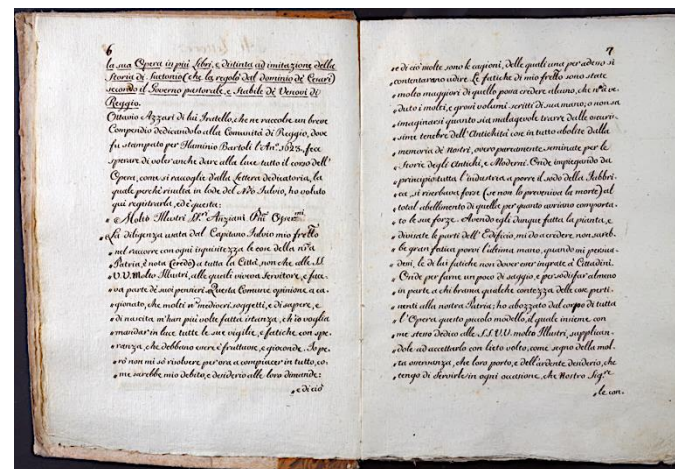 6
la sua Opera in più Libri, e distinta ad imitazione della
Storia di Suetonio (che la regolò dal dominio de' Cesari)
secondo il Governo pastorale, e stabile de' Vescovi di
Reggio.
Ottavio Azzari di lui fratello, che ne raccolse un breve
Compendio dedicandolo alla Comunità di Reggio, dove
fu stampato per Flaminio Bartoli l'An.º 1623, fece
sperare di voler anche dare alla luce tutto il corso dell'
Opera, come si raccoglie dalla Lettera dedicatoria, la
quale perchè risulta in lode del Nrō Fulvio, ho voluto
qui registrarla, ed è questa:
Molto Illustri Sig.ri Anziani
La diligenza usata dal Capitano Fulvio mio frēllo
nel raccorre con ogni isquisitezza le cose della nr̄a
Patria, è nota (credo) a tutta la Città, non che alle SS.
V.V. Molto Illustri, alle quali viveva servitore, e face-
va parte de suoi pensieri. Questa Comune opinione a ca-
gionato, che molti nō mediocri soggetti, e di sapere, e
di nascita m'han più volte fatta istanza, ch'io voglia
mandar in luce tutte le sue vigilie, e fatiche con spe-
ranza, che debbano avere è fruttuose, e gioconde. Io pe-
rò non mi sò risolvere per ora a compiacer in tutto, co-
me sarebbe mio debito, e desiderio alle loro dimande:
e di ciò
7
e di ciò molte sono le cagioni, delle quali una per adesso si
contentaranno udire. Le fatiche di mio frēllo sono state
molto maggiori di quello possa credere alcuno, che nō à ve-
duto i molti, e grossi volumi scritti di sua mano; o non sa
imaginarsi quanto sia malagevole trarre dalle oscuris-
sime tenebre dell'Antichità cose in tutto abolite dalla
memoria de' Nostri, overo parcamente seminate per le
Storie degli Antichi, e Moderni. Onde impiegando da
principio tutta l'industria a porre il sodo della Fabbri-
ca, si riserbava forse (se non lo preveniva la morte) al
total abellimento di quella per quanto avriano comporta-
to le sue forze. Avendo egli dunque fatta la pianta, e
divisate le parti dell'Edificio, mi do a credere non sareb-
be gran fatica porvi l'ultima mano, quando mi persua-
dessi, le di lui fatiche non dover esser ingrate a' Cittadini.
Onde per farne un poco di saggio, e per sodisfar almeno
in parte a chi brama qualche contezza delle cose perti-
nenti alla nostra Patria; ho abozzato dal corpo di tutta
l'Opera questo picciolo modello, il quale insieme con
me stesso dedico alle S.S. V.V. molto Illustri, supplican-
dole ad accettarlo con lieto volto, come segno della mol-
ta osservanza, che loro porto, e dell'ardente desiderio, che
tengo di servirle in ogni occasione, che Nostro Sig.re
le con.